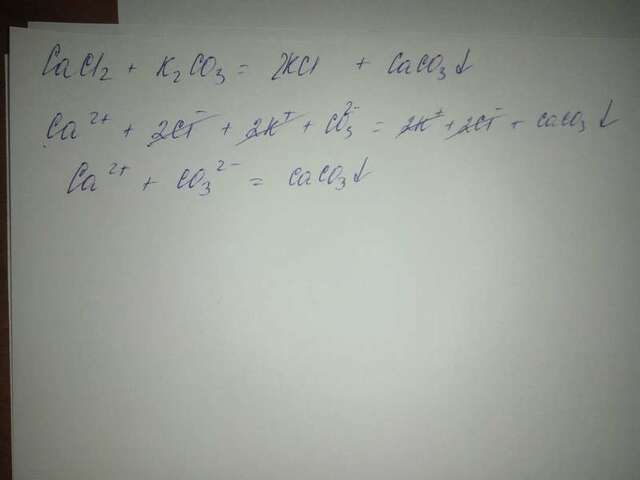 CaCl₂ + K₂CO₃ = 2KCl + CaCO₃↓
Ca²⁺ + 2Cl⁻ + 2K⁺ + CO₃²⁻ = 2K⁺ + 2Cl⁻ + CaCO₃↓
Ca²⁺ + CO₃²⁻ = CaCO₃↓